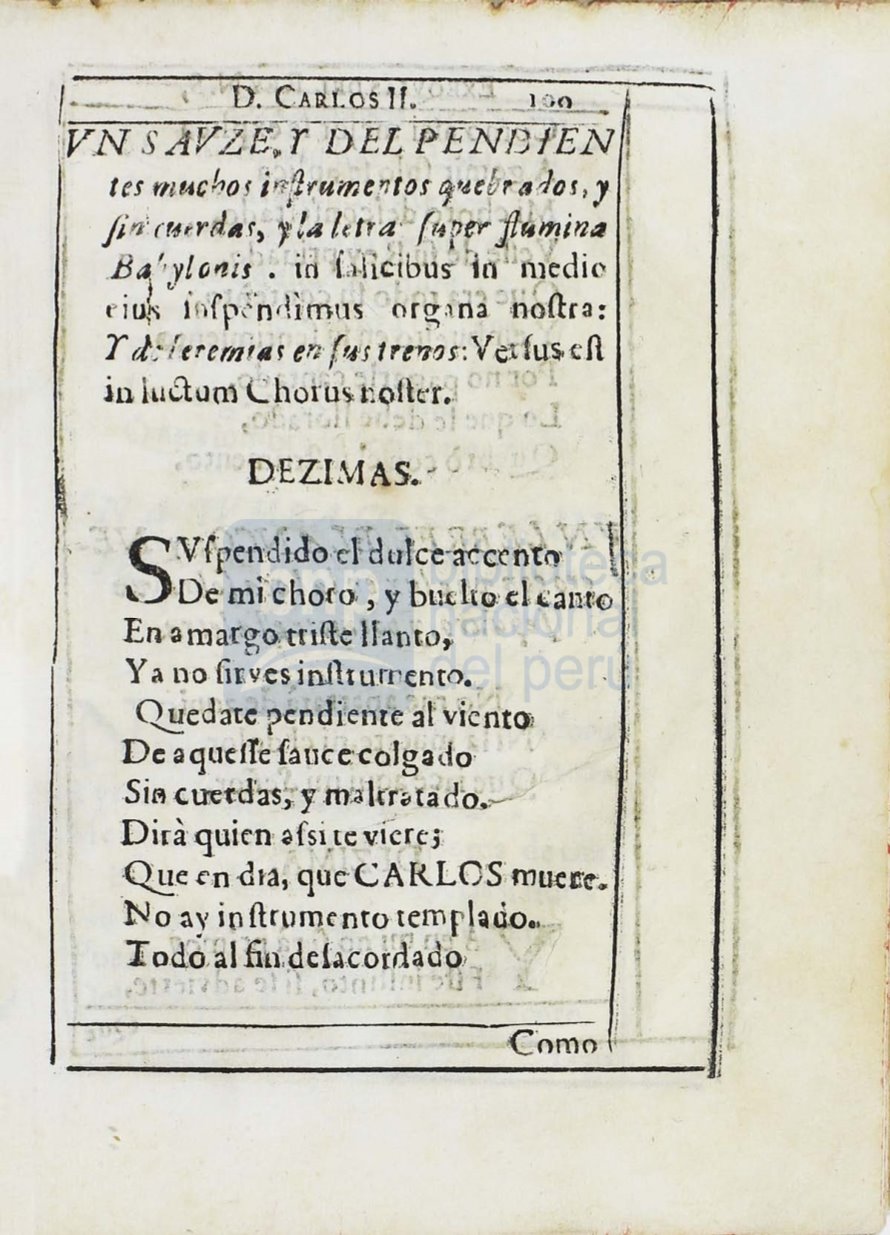 D. CARLOS II. 100
VN SAVZE, Y DEL PENDIEN
tes muchos inſtrumentos quebrados, y
ſin cuerdas, y la letra ſuper flumina
Babylonis. in ſalicibus in medio
eius ſuſpendimus organa noſtra:
Y de Ieremias en ſus trenos: Verſus eſt
in luctum Chorus noſter.
DEZIMAS.
SVſpendido el dulce accento
De mi choro, y buelto el canto
En amargo triſte llanto,
Ya no ſirves inſtrumento.
Quedate pendiente al viento
De aqueſſe ſauce colgado
Sin cuerdas, y maltratado.
Dirà quien aſsi te viere;
Que en dia, que CARLOS muere.
No ay inſtrumento templado.
Todo al fin deſacordado
Como
biblioteca
nacional
del perú